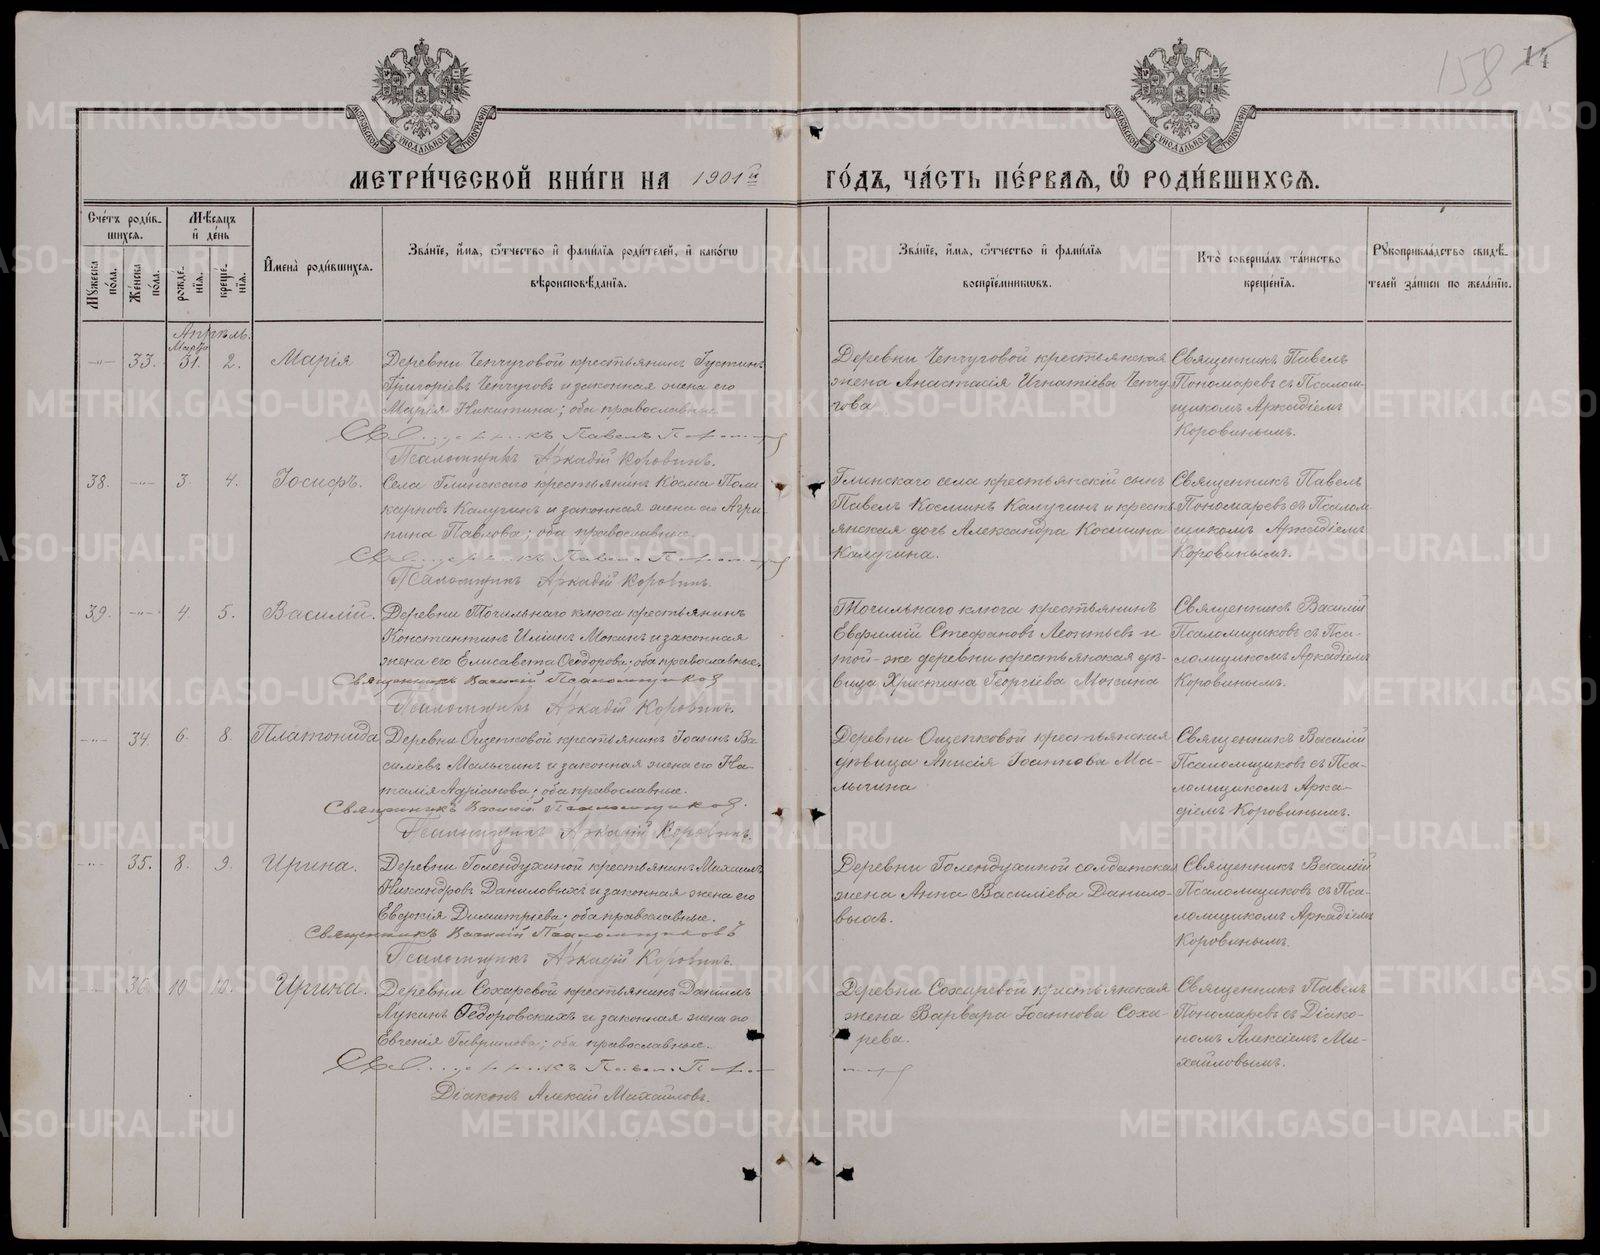 158 14
МОСКОВСКОЙ СѴНОДАЛЬНОЙ ТИПОГРАФІИ
МОСКОВСКОЙ СѴНОДАЛЬНОЙ ТИПОГРАФІИ
МЕТРИ́ЧЕСКОЙ КНИ́ГИ НА 1901й ГО́ДЪ, ЧА́СТЬ ПЕ́РВАЯ, Ѡ РОДИ́ВШИХСЯ.
Сче́тъ роди́в-
шихся.
Мꙋ́жеска по́ла.
Же́нска по́ла.
Мѣ́сяцъ
и҆ де́нь
рожде́-
нїя.
креще́-
нїя.
И҆мена̀ роди́вшихся.
Зва́нїе, и҆́мя, ѻ҆́тчество и҆ фами́лїя роди́телей, и҆ како́гѡ
вѣроисповѣ́данїя.
Зва́нїе, и҆́мя, ѻ҆́тчество и҆ фами́лїя
воспрїе́мникѡвъ.
Кто̀ соверша́лъ та́инство
креще́нїя.
Рꙋкоприкла́дство свидѣ́-
телей за́писи по жела́нїю.
Апрѣль.
Марта
-"- 33. 31. 2. Марія
Деревни Ченчуговой крестьянинъ Іустинъ
Григоріевъ Ченчуговъ и законная жена его
Марія Никитина; оба православные.
Священникъ Павелъ Пономаревъ
Псаломщикъ Аркадій Коровинъ.
Деревни Ченчуговой крестьянская
жена Анастасія Игнатіева Ченчу
гова
Священникъ Павелъ
Пономаревъ съ Псалом-
щикомъ Аркадіемъ
Коровинымъ.
38. -"- 3. 4. Іосифъ.
Села Глинскаго крестьянинъ Косма Поли
карповъ Калугинъ и законная жена его Агри-
пина Павлова; оба православные.
Священникъ Павелъ Пономаревъ
Псаломщикъ Аркадій Коровинъ.
Глинскаго села крестьянскій сынъ
Павелъ Косминъ Калугинъ и кресть
янская дочь Александра Космина
Калугина.
Священникъ Павелъ
Пономаревъ съ Псалом-
щикомъ Аркадіемъ
Коровинымъ.
39. -"- 4. 5. Василій.
Деревни Точильнаго ключа крестьянинъ
Константинъ Илиинъ Мокинъ и законная
жена его Елисавета Ѳеодорова; оба православные.
Священникъ Василій Псаломщиковъ
Псаломщикъ Аркадій Коровинъ.
Точильнаго ключа крестьянинъ
Евфимій Стефановъ Леонтьевъ и
той-же деревни крестьянская дѣ-
вица Христина Георгіева Мокина
Священникъ Василій
Псаломщиковъ съ Пса-
ломщикомъ Аркадіемъ
Коровинымъ.
-"- 34. 6. 8. Платонида
Деревни Ощепковой крестьянинъ Іоаннъ Ва-
силіевъ Малыгинъ и законная жена его На-
талія Адріанова; оба православные.
Священникъ Василій Псаломщиковъ.
Псаломщикъ Аркадій Коровинъ.
Деревни Ощепковой крестьянская
дѣвица Анисія Іоаннова Ма-
лыгина
Священникъ Василій
Псаломщиковъ съ Пса-
ломщикомъ Арка-
діемъ Коровинымъ.
-"- 35. 8. 9. Ирина.
Деревни Голендухиной крестьянинъ Михаилъ
Никандровъ Даниловыхъ и законная жена его
Евдокія Димитріева; оба православные.
Священникъ Василій Псаломщиковъ
Псаломщикъ Аркадій Коровинъ.
Деревни Голендухиной солдатская
жена Анна Василіева Данило-
выхъ.
Священникъ Василій
Псаломщиковъ съ Пса-
ломщикомъ Аркадіемъ
Коровинымъ.
36. 10 12. Ирина.
Деревни Сохаревой крестьянинъ Даніилъ
Лукинъ Ѳедоровскихъ и законная жена его
Евгенія Гавриилова; оба православные.
Священникъ Павелъ Пономаревъ
Діаконъ Алексій Михайловъ.
Деревни Сохаревой крестьянская
жена Варвара Іоаннова Соха-
рева.
Священникъ Павелъ
Пономаревъ съ Діако-
номъ Алексіемъ Ми-
хайловымъ.
METRIKI.GASO-URAL.RU